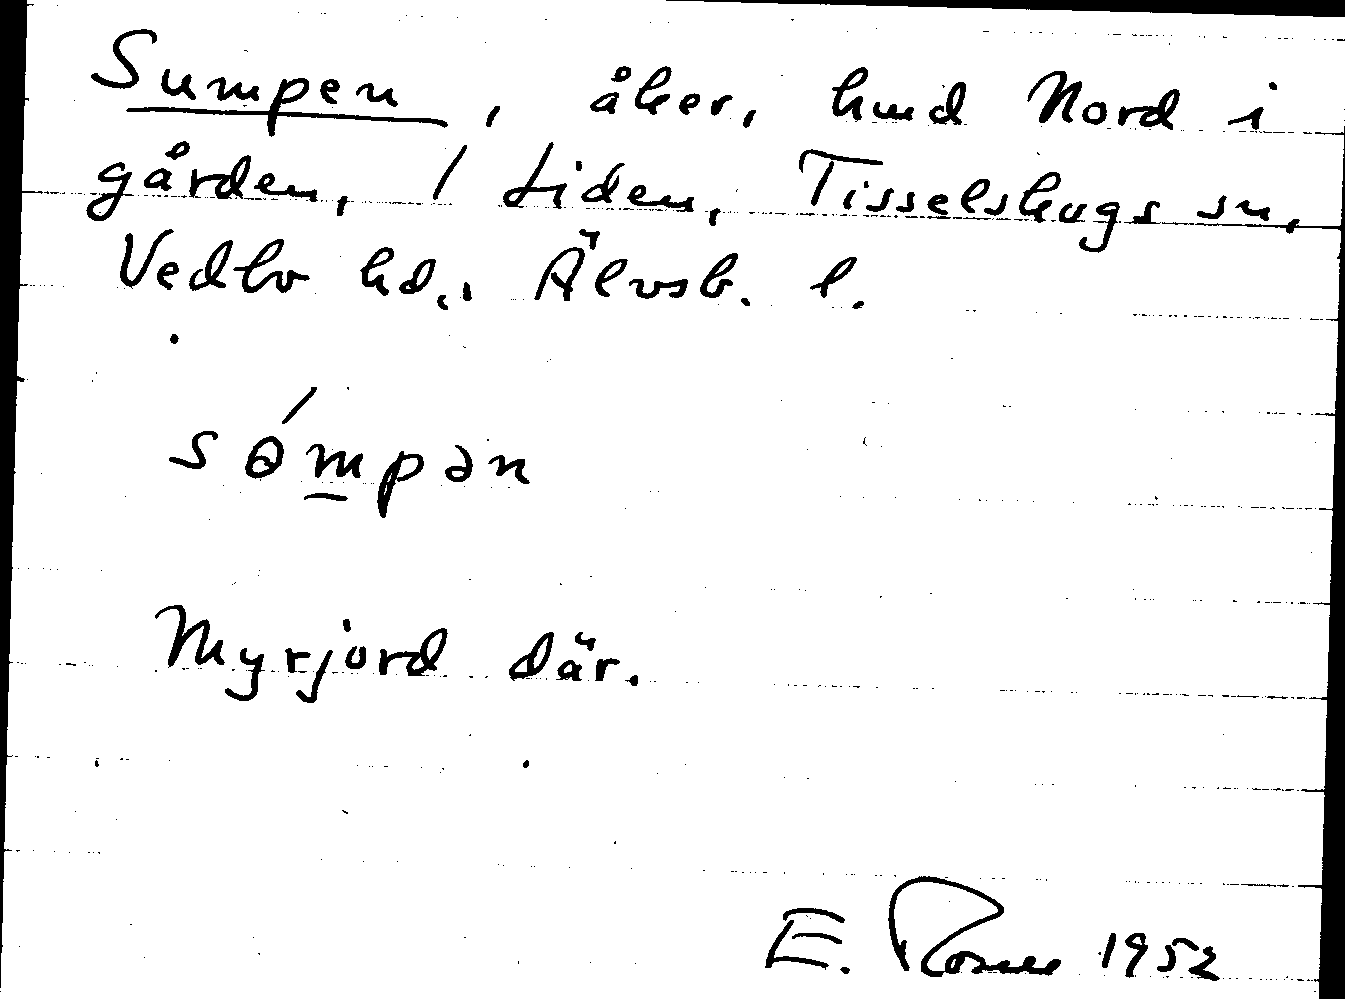 Sumpen, åker, hmd Nord i
gården, 1 Liden, Tisselskogs sn,
Vedbo hd., Älvsb. l.
sɵ́m̲pən
Myrjord där.
E. 1952